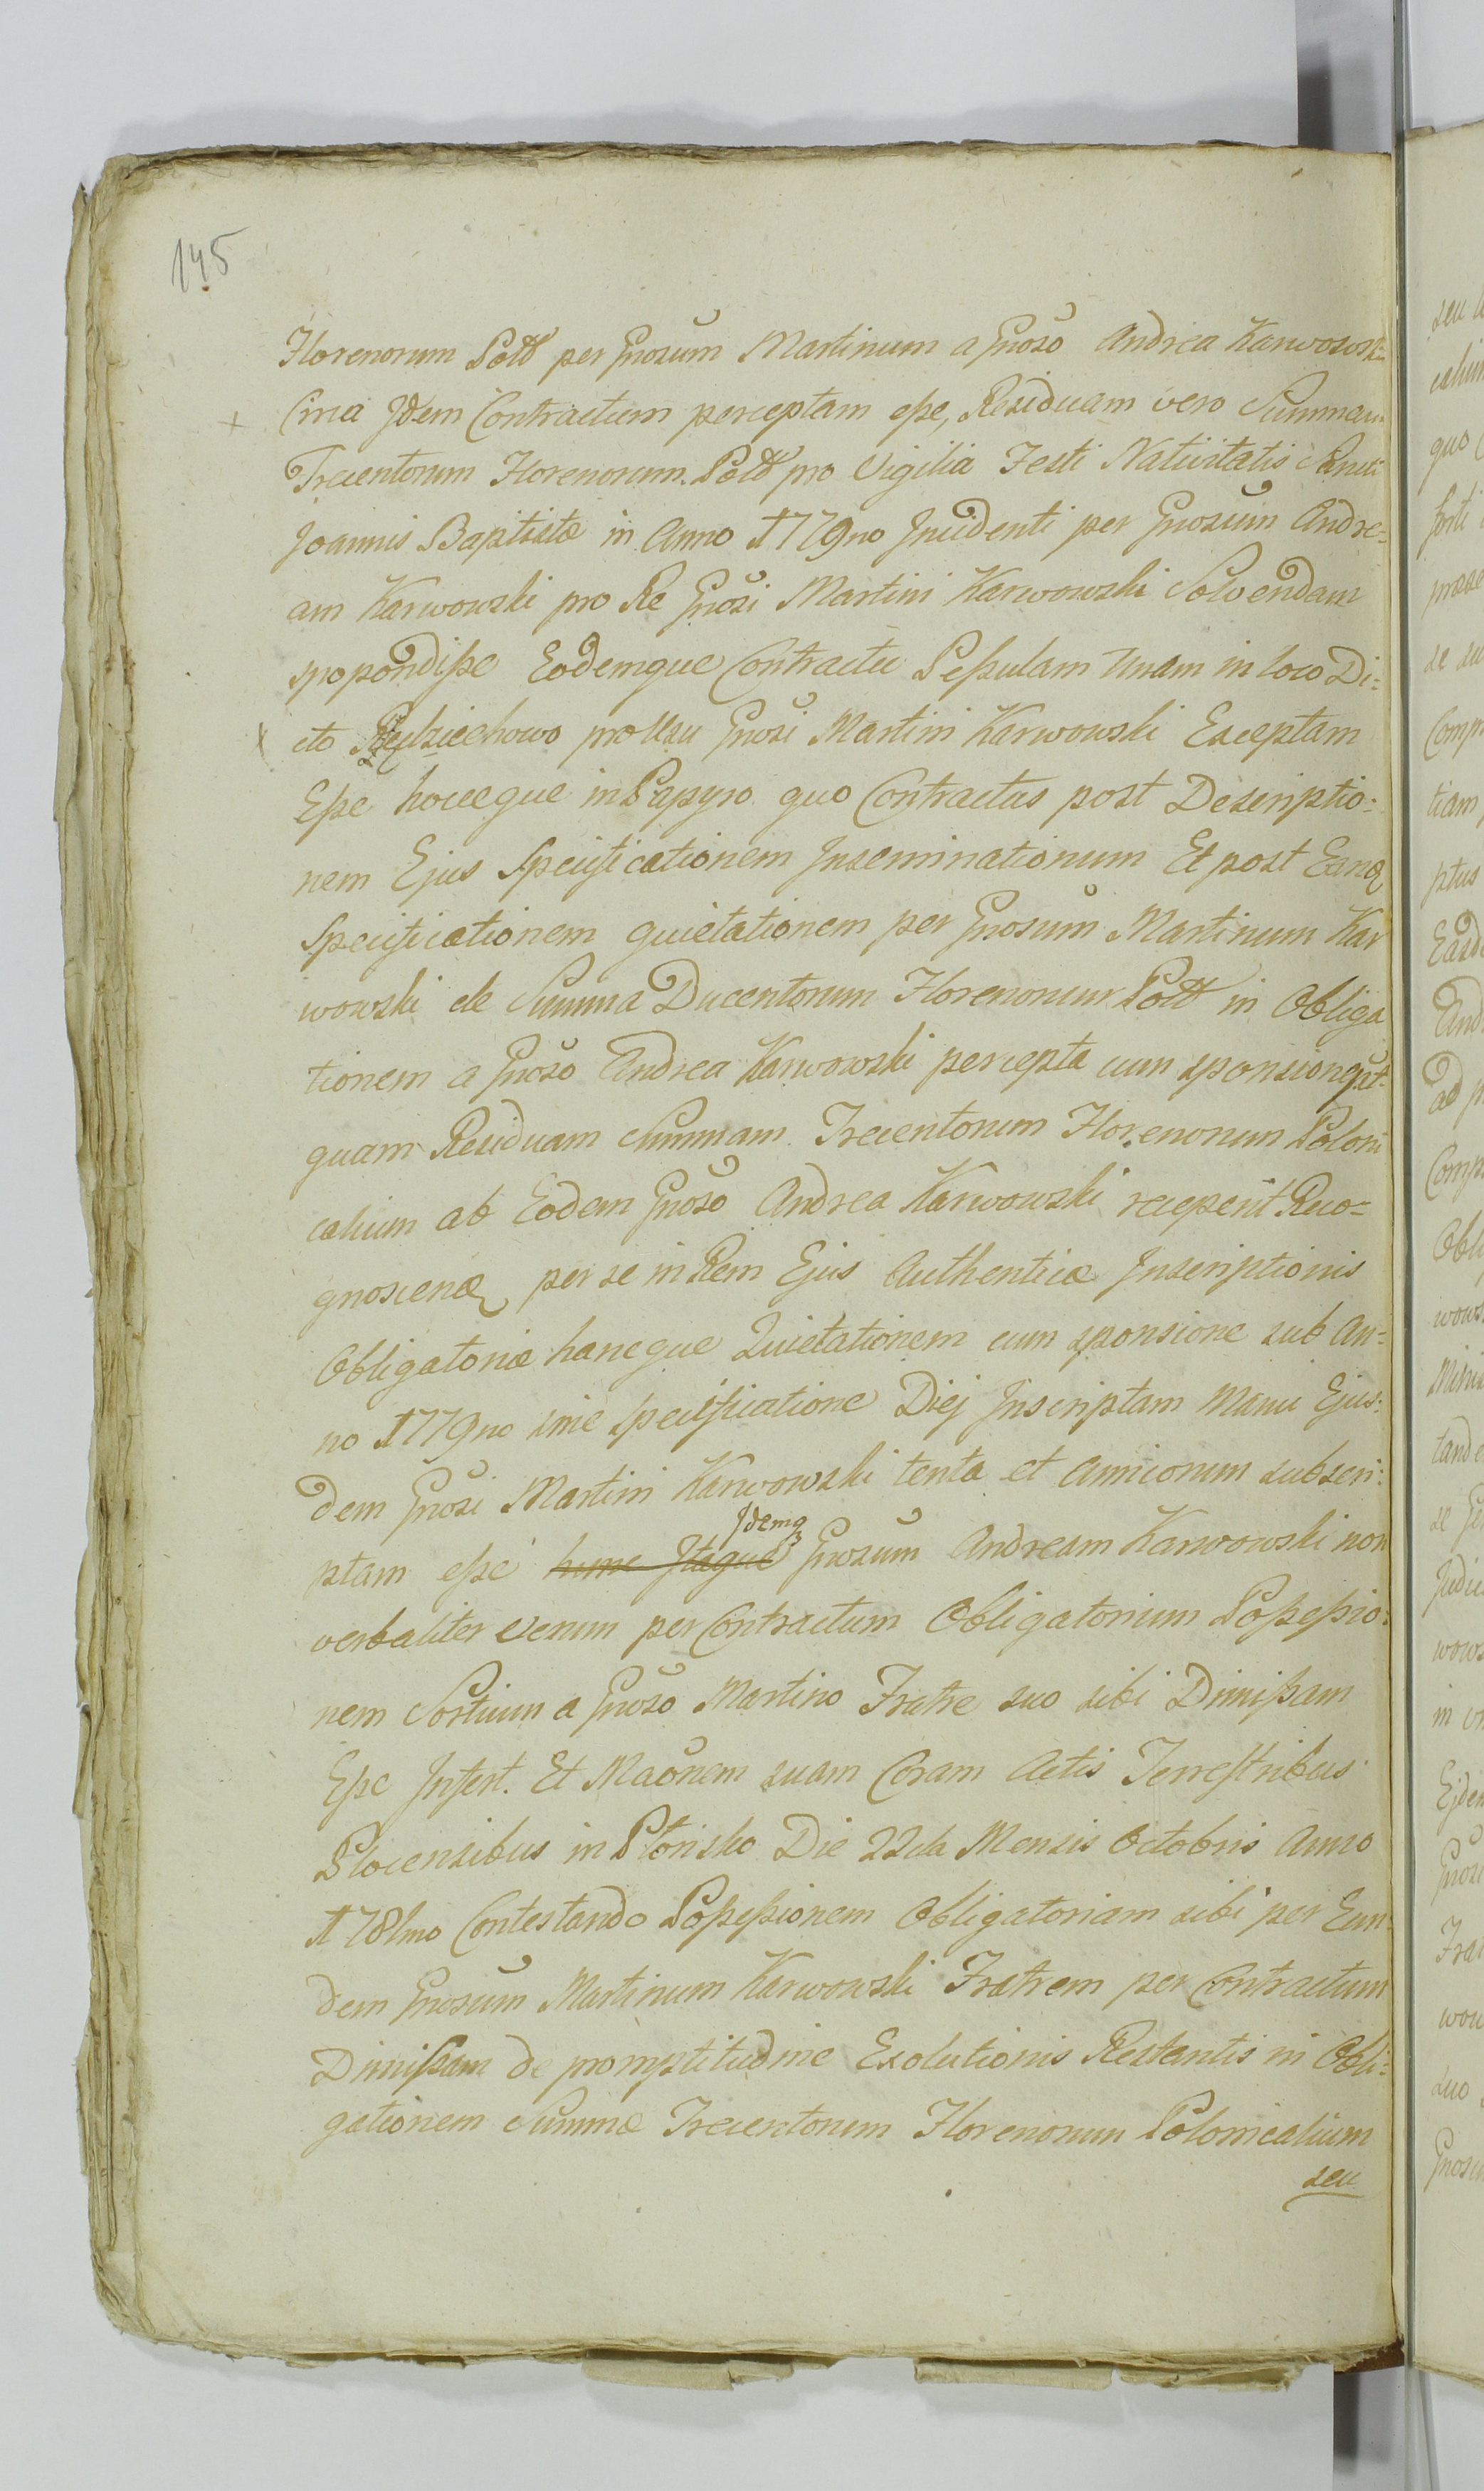 145
Florenorum Poll per Gnosum Martinum a Gnoso Andrea Karwowski
Circa Idem Contractum perceptam esse, Residuam vero Summam
Trecentorum Florenorum Poll pro Vigilia Festi Nativitatis Sancti
Joannis Baptistæ in Anno 1779no Incidenti per Gnosum Andre=
am Karwowski pro Re Gnosi Martini Karwowski Solvendam
spopondisse Eodemque Contractu Pessulam Unam in loco Di=
cto pro Usu Gnosi Martini Karwowski Exceptam
Esse hocceque in Papyro quo Contractus post Descriptio=
nem Ejus Specificationem Inseminationum Et post Eand
Specificationem quietationem per Gnosum Martinum Kar
wowski de Summa Ducentorum Florenorum Poll in Obliga
tionem a Gnoso Andrea Karwowski percepta cum sponsione
quam Residuam Summam Trecentorum Florenorum Poloni
calium ab Eodem Gnoso Andrea Karwowski receperit Reco=
gnoscend per se in Rem Ejus Authenticæ Inscriptionis
Obligatoriæ hancque Quietationem cum sponsione sub An=
no 1779no sine specificatione Diej Inscriptam Manu Ejus=
dem Gnosi Martini Karwowski tenta et Amicorum subscri=
ptam esse hunc Itaque Idemq Gnosum Andream Karwowski non
verbaliter verum per Contractum Obligatorium Possessio=
nem Sortium a Gnoso Martino Fratre suo sibi Dimissam
Esse Infert. Et Maonem suam Coram Actis Terrestribus
Plocensibus in Plonsko Die 22da Mensis Octobris Anno
1781mo Contestando Possessionem Obligatoriam sibi per Eun=
dem Gnosum Martinum Karwowski Fratrem per Contractum
Dimissam de promptitudine Exolutionis Restantis in Obli=
gationem Summæ Trecentorum Florenorum Polonicalium
seu